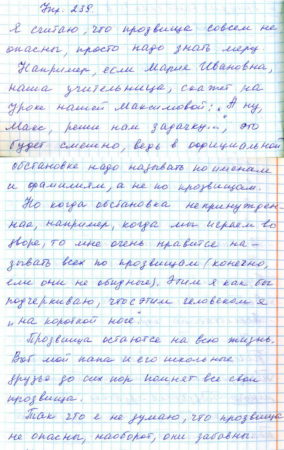 Упр. 239.
Я считаю, что прозвища совсем не
опасны, просто надо знать меру
Например, если Мария Ивановна,
наша учительница, скажет на
уроке нашей Максимовой: „А ну,
Макс, реши нам задачку...", это
будет смешно, ведь в официальной
обстановке надо называть по именам
и фамилиям, а не по прозвищам.
Но когда обстановка непринужден
ная, например, когда мы играем во
дворе, то мне очень нравится на-
зывать всех по прозвищам (конечно,
если они не обидное). Этим я как бы
подчеркиваю, что с этим человеком я
„на короткой ноге".
Прозвища остаются на всю жизнь.
Вот мой папа и его школьные
друзья до сих пор помнят все свои
прозвища.
Так что я не думаю, что прозвища
не опасны, наоборот, они забавны